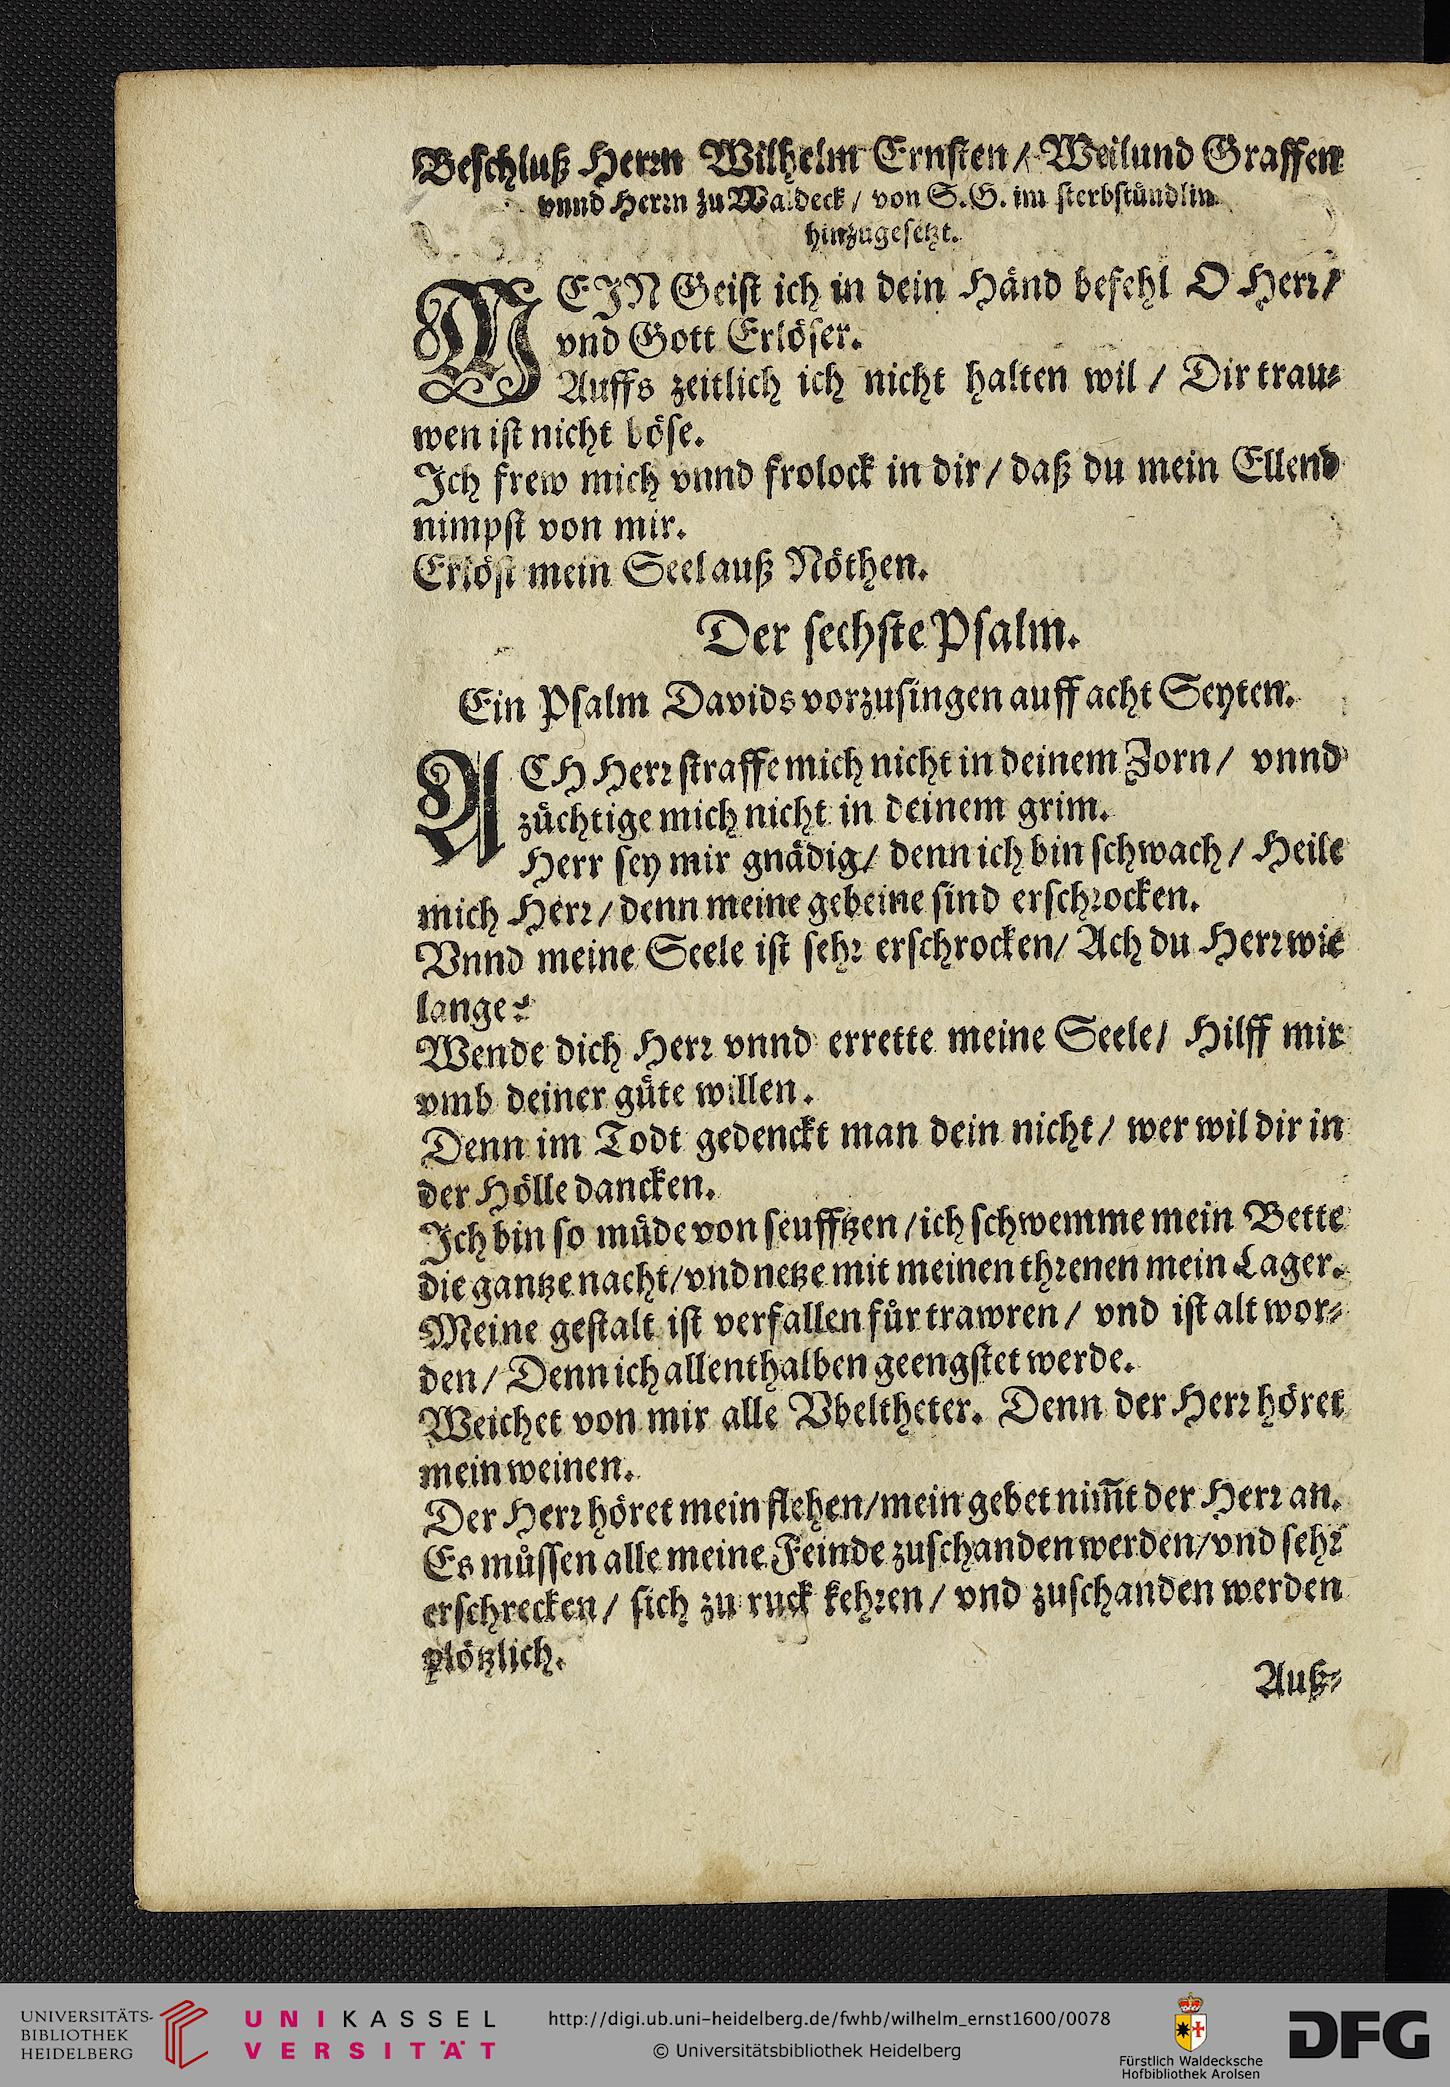 Beschluß Herrn Wilhelm Ernsten / Weilund Graffen
vnnd Herrn zu Waldeck / von S. G. im sterbstündlin
hinzugesetzt.
MEIN Geist ich in dein Händ befehl O Herr /
vnd Gott Erlöser.
Auffs zeitlich ich nicht halten wil / Dir trau⸗
wen ist nicht böse.
Ich frew mich vnnd frolock in dir / daß du mein Ellend
nimpst von mir.
Erlöst mein Seel auß Nöthen.
Der sechste Psalm.
Ein Psalm Davids vorzusingen auff acht Seyten.
ACH Herr straffe mich nicht in deinem Zorn / vnnd
züchtige mich nicht in deinem grim.
Herr sey mir gnädig / denn ich bin schwach / Heile
mich Herr / denn meine gebeine sind erschrocken.
Vnnd meine Seele ist sehr erschrocken / Ach du Herr wie
lange?
Wende dich Herr vnnd errette meine Seele / Hilff mir
vmb deiner güte willen.
Denn im Todt gedenckt man dein nicht / wer wil dir in
der Hölle dancken.
Ich bin so müde von seufftzen / ich schwemme mein Bette
die gantze nacht / vnd netze mit meinen threnen mein Lager.
Meine gestalt ist verfallen für trawren / vnd ist alt wor⸗
den / Denn ich allenthalben geengstet werde.
Weichet von mir alle Vbeltheter. Denn der Herr höret
mein weinen.
Der Herr höret mein flehen / mein gebet nim̄t der Herr an.
Es müssen alle meine Feinde zuschanden werden / vnd sehr
erschrecken / sich zu ruck kehren / vnd zuschanden werden
plötzlich.
Auß⸗
UNIVERSITÄTS-
BIBLIOTHEK
HEIDELBERG
UNIKASSEL
VERSITÄT
http://digi.ub.uni-heidelberg.de/fwhb/wilhelm_ernst1600/0078
© Universitätsbibliothek Heidelberg
Fürstlich Waldecksche
Hofbibliothek Arolsen
DFG